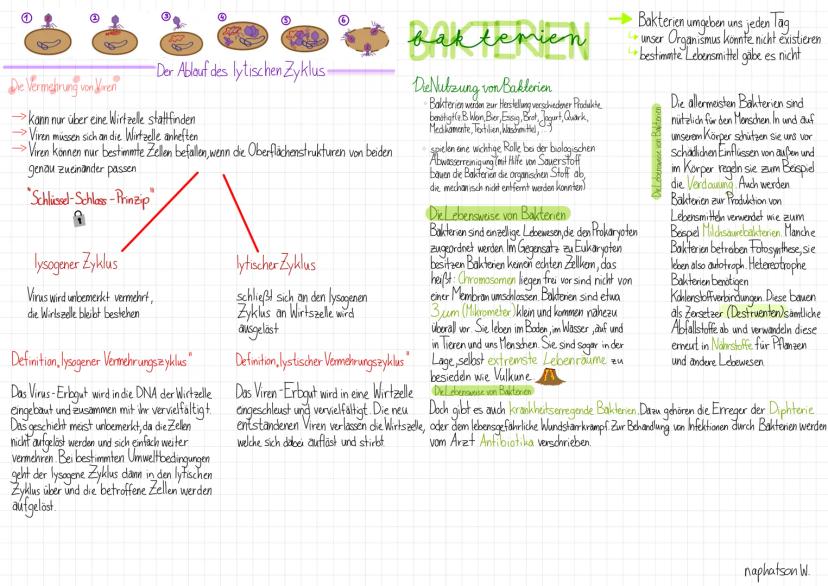 1 2 3 4 5 6
Der Ablauf des lytischen Zyklus
Die Vermehrung von Viren
→ Kann nur über eine Wirtzelle stattfinden
→ Viren müssen sich an die Wirtzelle anheften
→ Viren können nur bestimmte Zellen befallen, wenn die Oberflächenstrukturen von beiden
genau zueinander passen
"Schlüssel-Schloss-Prinzip"
lysogener Zyklus
Virus wird unbemerkt vermehrt,
die Wirtszelle bleibt bestehen
lytischer Zyklus
schließt sich an den lysogenen
Zyklus an Wirtszelle wird
ausgelöst
Definition „lysogener Vermehrungszyklus"
Das Virus-Erbgut wird in die DNA der Wirtzelle
eingebaut und zusammen mit ihr vervielfältigt.
Das geschieht meist unbemerkt, da die Zellen
nicht aufgelöst werden und sich einfach weiter
vermehren. Bei bestimmten Umweltbedingungen
geht der lysogene Zyklus dann in den lytischen
Zyklus über und die betroffene Zellen werden
aufgelöst.
Definition „lystischer Vermehrungszyklus"
Das Viren-Erbgut wird in eine Wirtzelle
eingeschleust und vervielfältigt. Die neu
entstandenen Viren verlassen die Wirtszelle,
welche sich dabei auflöst und stirbt.
BAKTERIEN
bakterien
→ Bakterien umgeben uns jeden Tag
↳ unser Organismus könnte nicht existieren
↳ bestimmte Lebensmittel gäbe es nicht
Die Nutzung von Bakterien
Bakterien werden zur Herstellung verschiedener Produkte
benötigt (z.B. Wein, Bier, Essig, Brot, Jogurt, Quark,
Medikamente, Textilien, Waschmittel, ...)
spielen eine wichtige Rolle bei der biologischen
Abwasserreinigung (mit Hilfe von Sauerstoff
bauen die Bakterien die organischen Stoff ab,
die mechanisch nicht entfernt werden konnten)
Die Lebensweise von Bakterien
Bakterien sind einzellige Lebewesen, die den Prokaryoten
zugeordnet werden. Im Gegensatz zu Eukaryoten
besitzen Bakterien keinen echten Zellkern, das
heißt: Chromosomen liegen frei vor sind nicht von
einer Membran umschlossen. Bakterien sind etwa
3 μm (Mikrometer) klein und kommen nahezu
überall vor. Sie leben im Boden, im Wasser, auf und
in Tieren und uns Menschen. Sie sind sogar in der
Lage, selbst extremste Lebenräume zu
besiedeln wie Vulkune.
Die Lebensweise von Bakterien
Doch gibt es auch krankheitserregende Bakterien. Dazu gehören die Erreger der Diphterie
oder dem lebensgefährliche Wundstarrkrampf. Zur Behandlung von Infektionen durch Bakterien werden
vom Arzt Antibiotika verschrieben.
Die Lebensweise von Bakterien
Die allermeisten Bakterien sind
nützlich für den Menschen. In und auf
unserem Körper schützen sie uns vor
schädlichen Einflüssen von außen und
im Körper regeln sie zum Beispiel
die Verdauung. Auch werden
Bakterien zur Produktion von
Lebensmitteln verwendet wie zum
Beispiel Milchsäurebakterien. Manche
Bakterien betreiben Fotosynthese, sie
leben also autotroph. Heterotrophe
Bakterien benötigen
Kohlenstoffverbindungen. Diese bauen
als Zersetzer (Destruenten) sämtliche
Abfallstoffe ab und verwandeln diese
erneut in Nährstoffe für Pflanzen
und andere Lebewesen.
naphatson W.